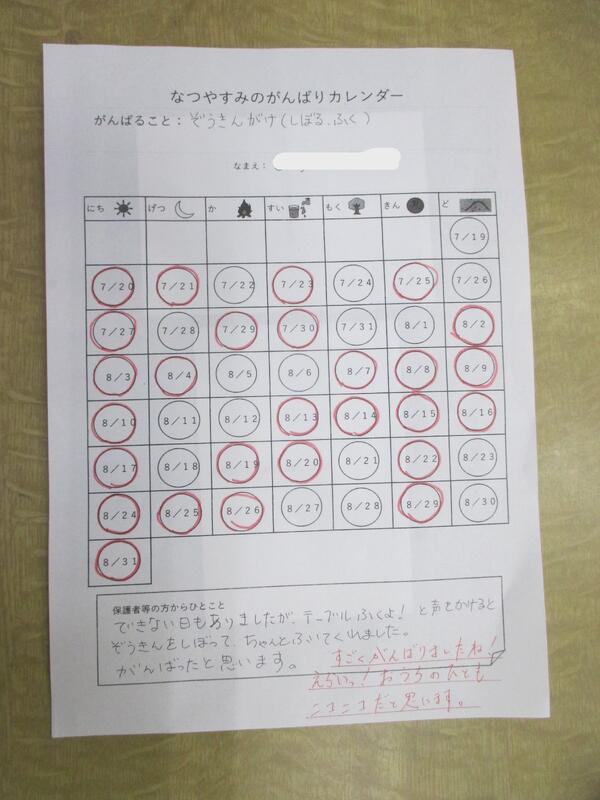 なつやすみのがんばりカレンダー
がんばること：ぞうきんがけ(しぼる、ふく)
なまえ：
にち げつ か すい もく きん ど
7／19
7／20 7／21 7／22 7／23 7／24 7／25 7／26
7／27 7／28 7／29 7／30 7／31 8／1 8／2
8／3 8／4 8／5 8／6 8／7 8／8 8／9
8／10 8／11 8／12 8／13 8／14 8／15 8／16
8／17 8／18 8／19 8／20 8／21 8／22 8／23
8／24 8／25 8／26 8／27 8／28 8／29 8／30
8／31
保護者等の方からひとこと
できない日もありましたが、テーブルふくよ！と声をかけると
ぞうきんをしぼって、ちゃんとふいてくれました。
がんばったと思います。
すごくがんばりましたね！
えらいっ！おうちのひとも
ニコニコだと思います。